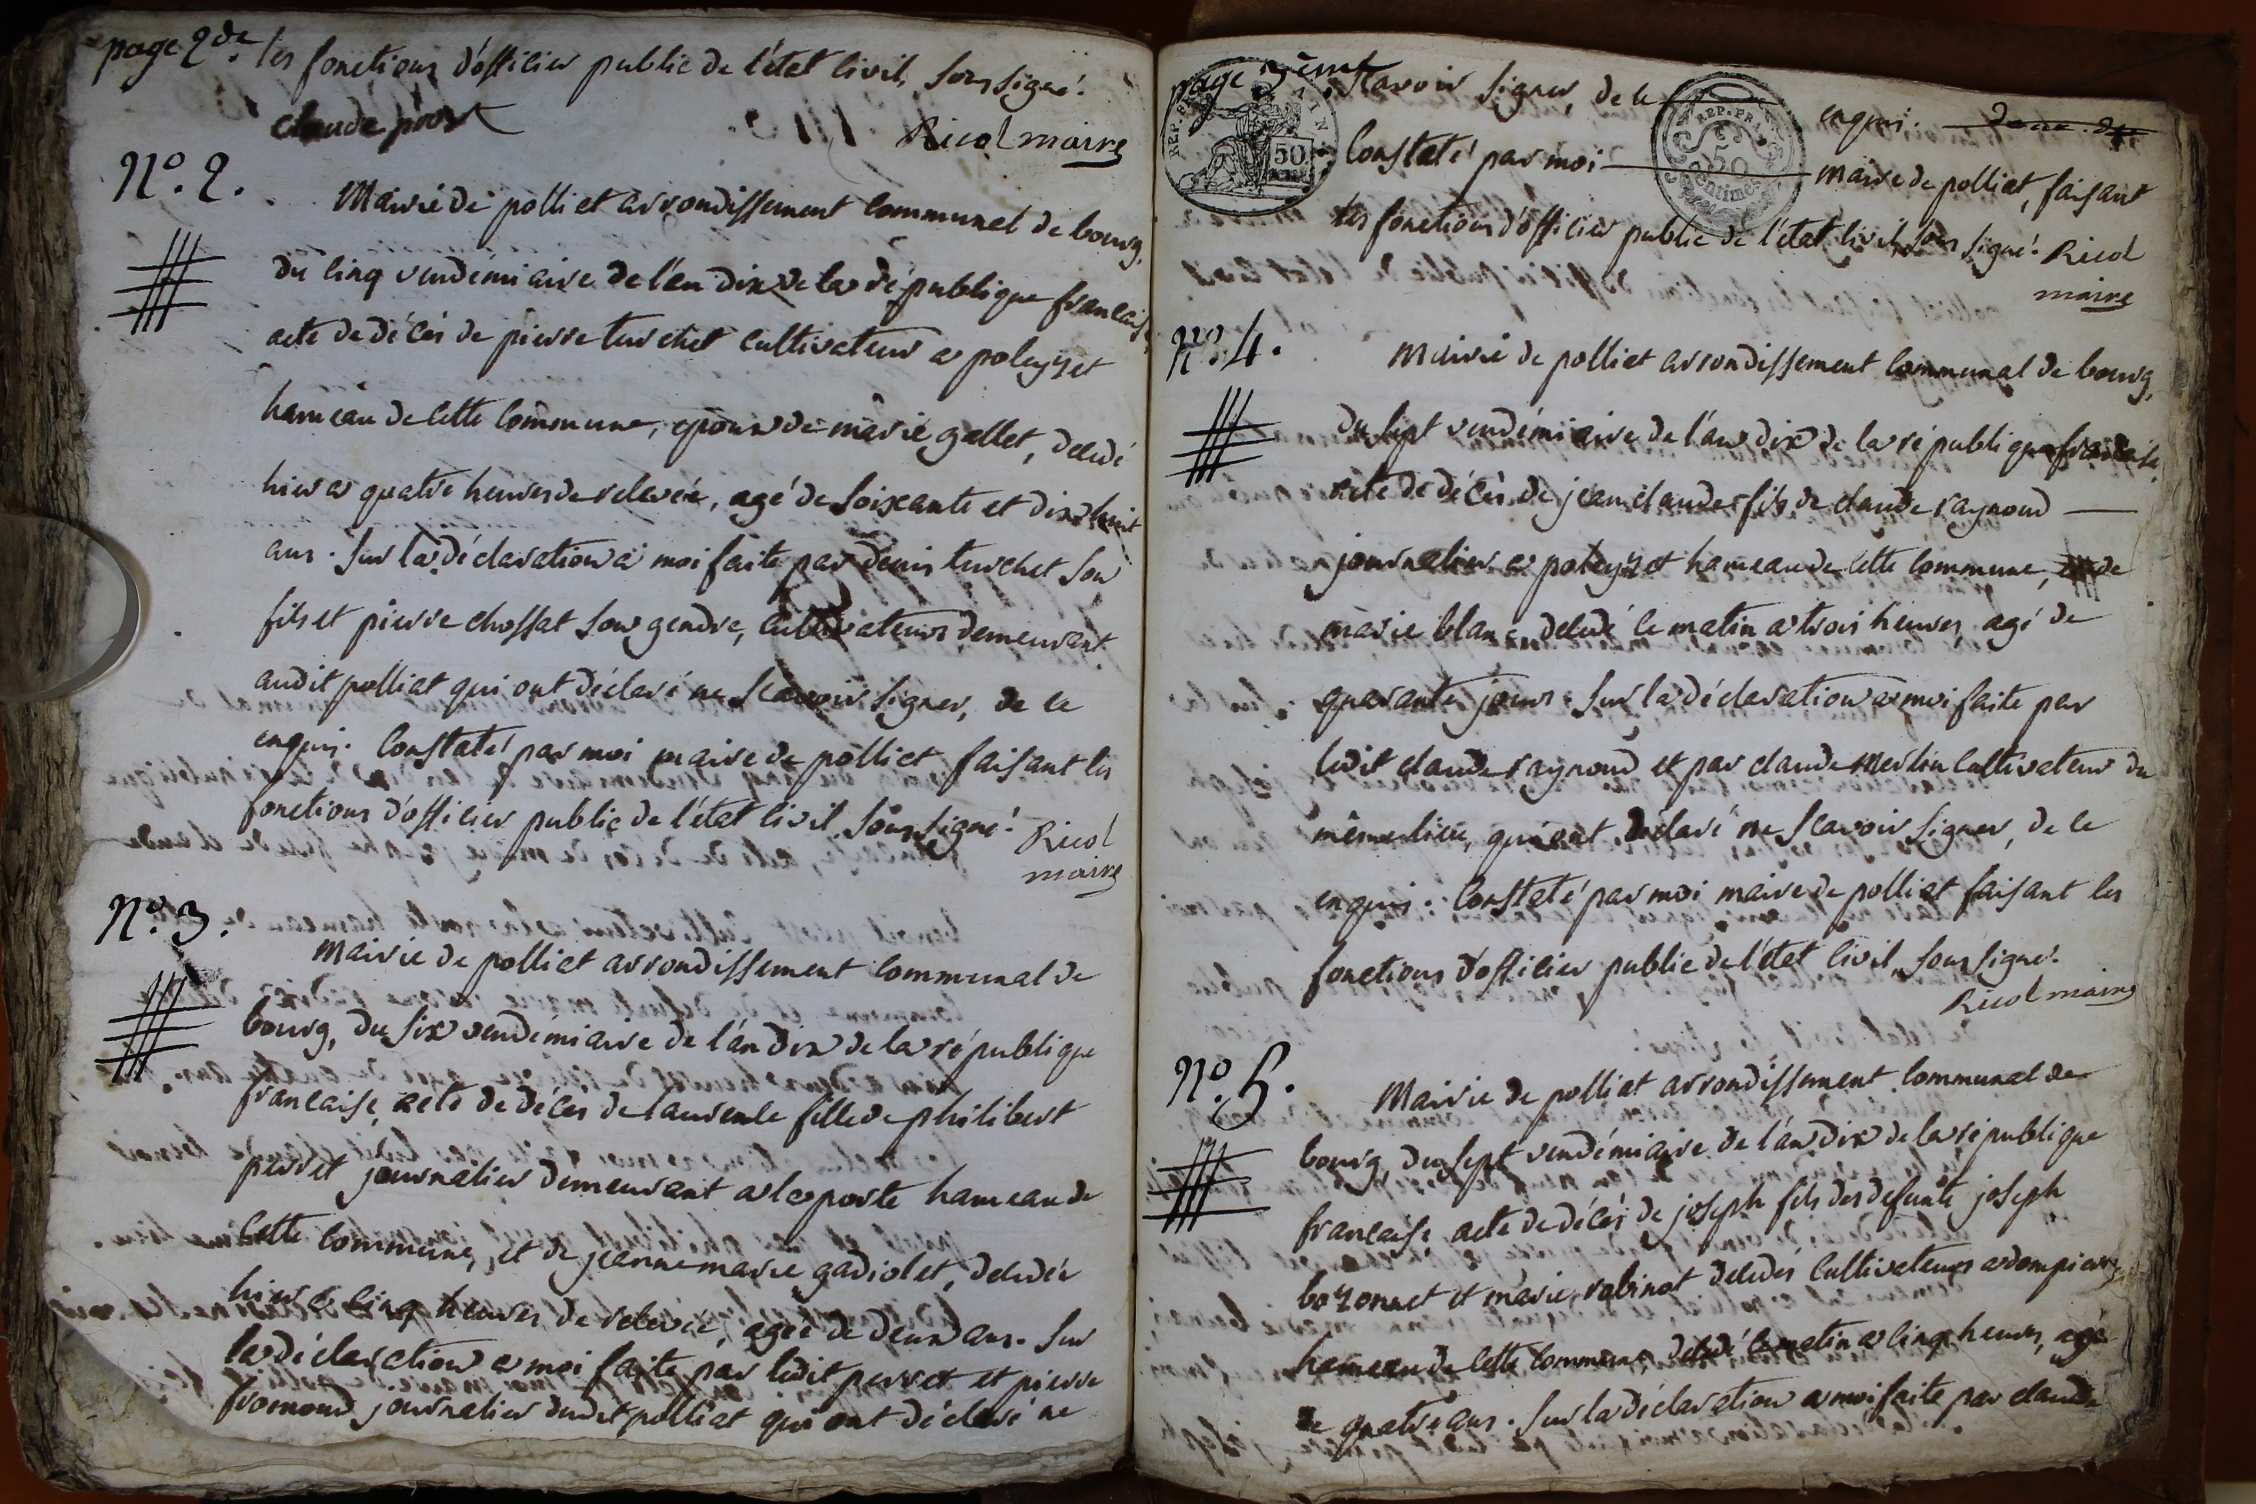 page 2de. les fonctions d'officier public de l'état civil, soussigné.
claude pivost
Ricol maire
No. 2.
Mairie de polliat arrondissement communal de bourg,
du cinq vendémiaire de l'an dix de la république francaise
acte de décès de pierre turchet cultivateur a poleyzet
hameau de cette commune, epoux de marie gallet, décédé
hier a quatre heures de relevée, agé de soixante et dix huit
ans. sur la déclaration a moi faite par denis turchet son
fils et pierre chossat son gendre, cultivateurs demeurant
audit polliat qui ont déclaré ne scavoir signer, de ce
enquis. Constaté par moi maire de polliat faisant les
fonctions d'officier public de l'état civil soussigné.
Ricol
maire
No. 3.
Mairie de polliat arrondissement communal de
bourg, du six vendémiaire de l'an dix de la république
francaise, acte de décès de laurence fille de philibert
perret journalier demeurant a la poste hameau de
cette commune, et de jeanne marie gadiolet, décédée
hier a cinq heures de relevée, agée de deux ans. sur
la déclaration a moi faite par ledit perret et pierre
fromond journalier dudit polliat qui ont déclaré ne
page 3ème. scavoir signer, de ce enquis.
Constaté par moi maire de polliat, faisant
les fonctions d'officier public de l'état civil, sous signé. Ricol
maire
REP. FRA
50
REP. FRA
50
centimes
No. 4.
Mairie de polliat arrondissement communal de bourg,
du sept vendémiaire de l'an dix de la république francaise,
acte de décès de jean claude fils de claude raynond
journalier a poleyzet hameau de cette commune, de
marie blanc, décédé ce matin a trois heures agé de
quarante jours. sur la déclaration a moi faite par
ledit claude raynond et par claude merlin cultivateur du
même lieu, qui ont déclaré ne scavoir signer, de ce
enquis. Constaté par moi maire de polliat faisant les
fonctions d'officier public de l'état civil, sous signé.
Ricol maire
No. 5.
Mairie de polliat arrondissement communal de
bourg, du sept vendémiaire de l'an dix de la république
francaise acte de décès de joseph fils des defunts joseph
bozonnet et marie robinot décédés cultivateurs a dompierre
hameau de cette commune, décédé ce matin a cinq heures, agé
de quatre ans. sur la déclaration a moi faite par claude